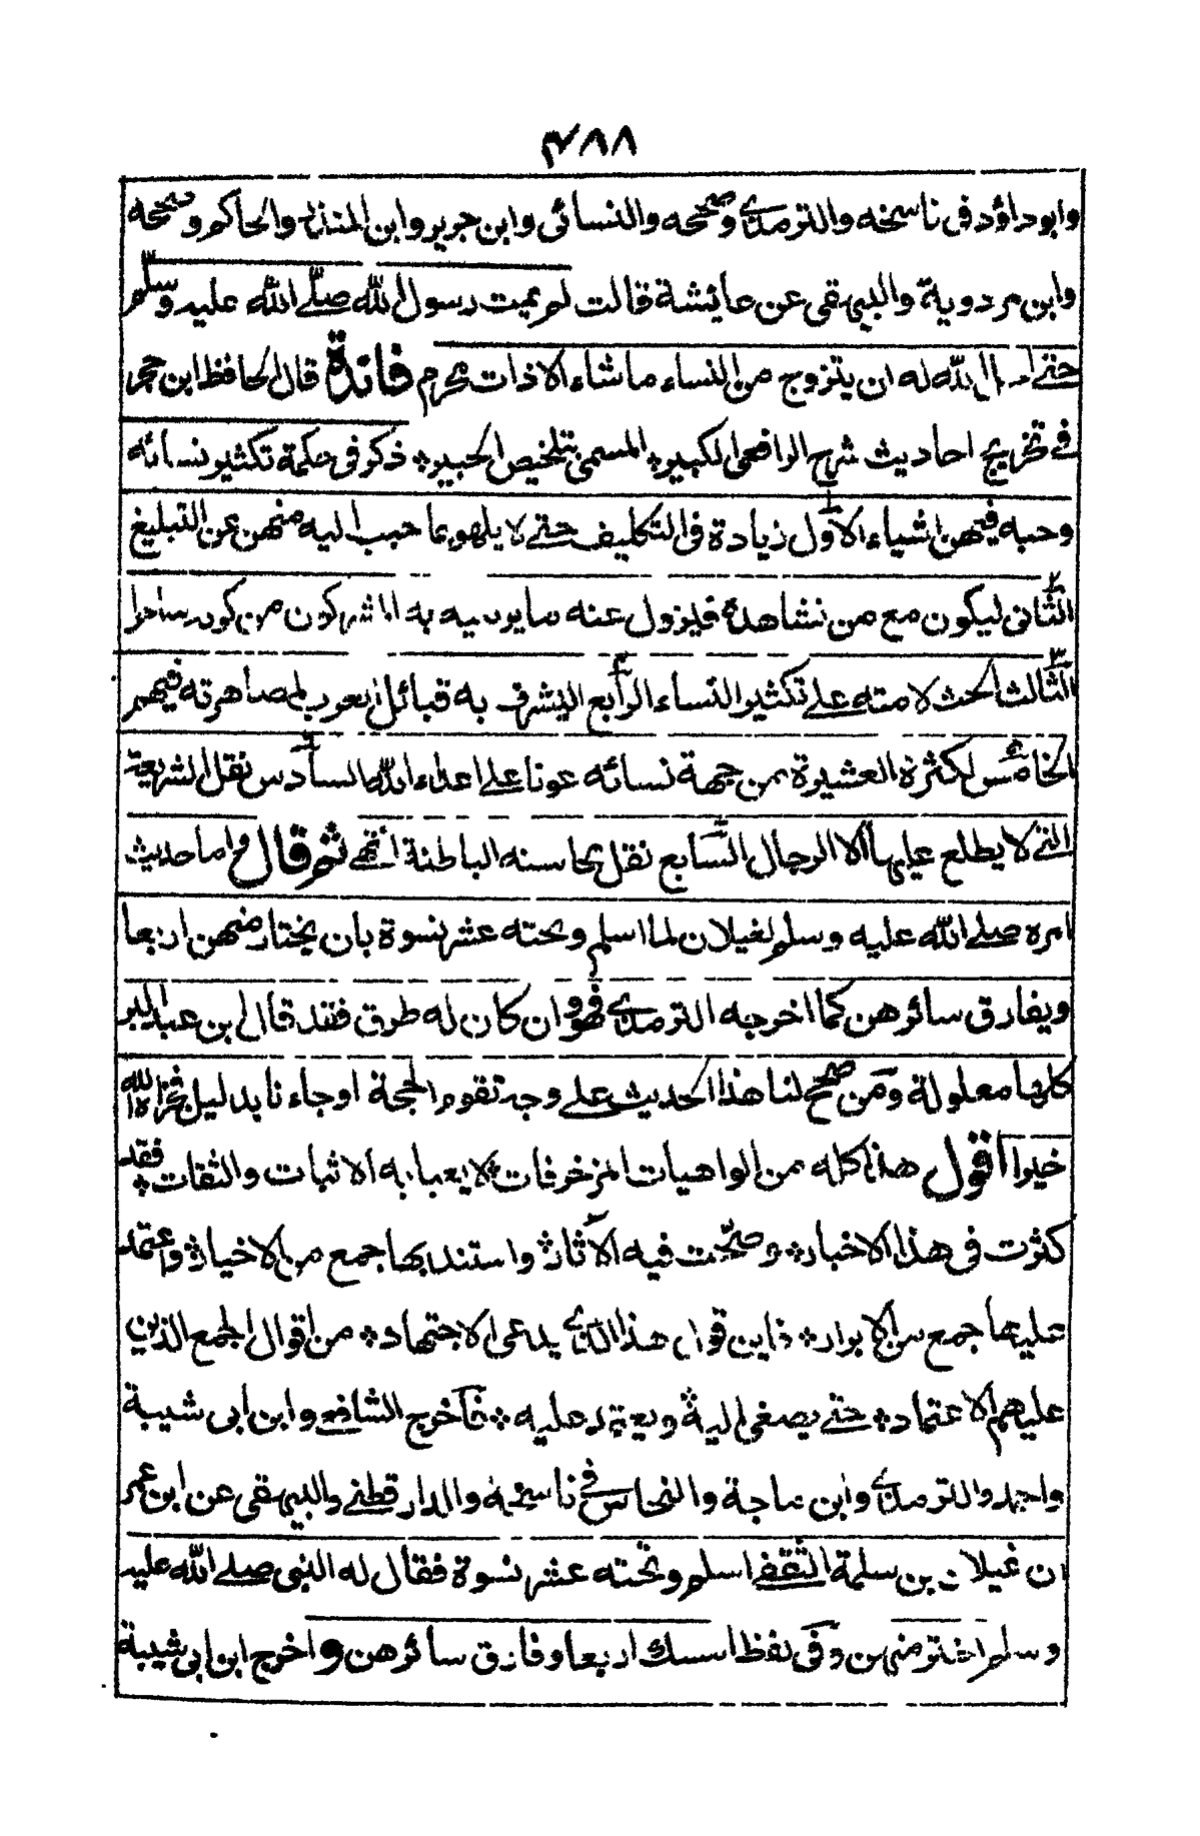 ۴۸۸
وابوداؤد فى ناسخه والترمذي وصححه والنسائى وابن جرير وابن المنذر والحاكم وصححه
وابن مردوية والبيهقى عن عايشة قالت لم يمت رسول الله صلے الله عليه وسلم
حتے احل الله له ان يتزوج من النساء ماشاء الا ذات محرم فائدة قال الحافظ ابن حجر
فے تخريج احاديث شرح الرافعى الكبير؞ المسمى بتلخيص الحبير؞ ذكر فى حكمة تكثير نسائه
وحبه فيهن اشياء الاول زيادة فى التكليف حتے لا يلهو بما حبب اليه منهن عن التبليغ
الثانى ليكون مع من تشاهده فيزول عنه ما يرميه به المشركون من كونه ساحرا
الثالث الحث لامته علے تكثير النساء الرابع اليشرف به قبائل العرب لمصاهرته فيهم
الخامس لكثرة العشيرة من جهة نسائه عونا على اعداء الله السادس نقل الشريعة
التے لا يطلع عليها الا الرجال السابع نقل محاسنه الباطنة انتهے ثم قال واما حديث
امره صلے الله عليه وسلم لغيلان لما اسلم وتحته عشر نسوة بان يختار منهن اربعا
ويفارق سائرهن كما اخرجه الترمذي فهو وان كان له طرق فقد قال ابن عبد البر
كلها معلولة ومن صحح لنا هذا الحديث علے وجه تقوم الحجة او جاءنا بدليل فجزاه الله
خيرا اقول هذا كله من الواهيات المزخرفات؞ لا يعبا به الاثبات والثقات؞ فقد
كثرت فى هذا الاخبار؞ وصحت فيه الآثار؞ واستند بها جمع من الاخيار؞ واعتمد
عليها جمع من الابرار؞ فاين قول هذا الذي يدعى الاجتهاد؞ من اقوال الجمع الذين
عليهم الاعتماد؞ حتے يصغى اليه؞ ويعتمد عليه؞ فاخرج الشافعے وابن ابى شيبة
واحمد والترمذي وابن ماجة والنحاس فے ناسخه والدارقطنے والبيهقى عن ابن عمر
ان غيلان بن سلمة الثقفے اسلم وتحته عشر نسوة فقال له النبى صلے الله عليه
وسلم اختر منهن وفى لفظ امسك اربعا وفارق سائرهن واخرج ابن ابى شيبة